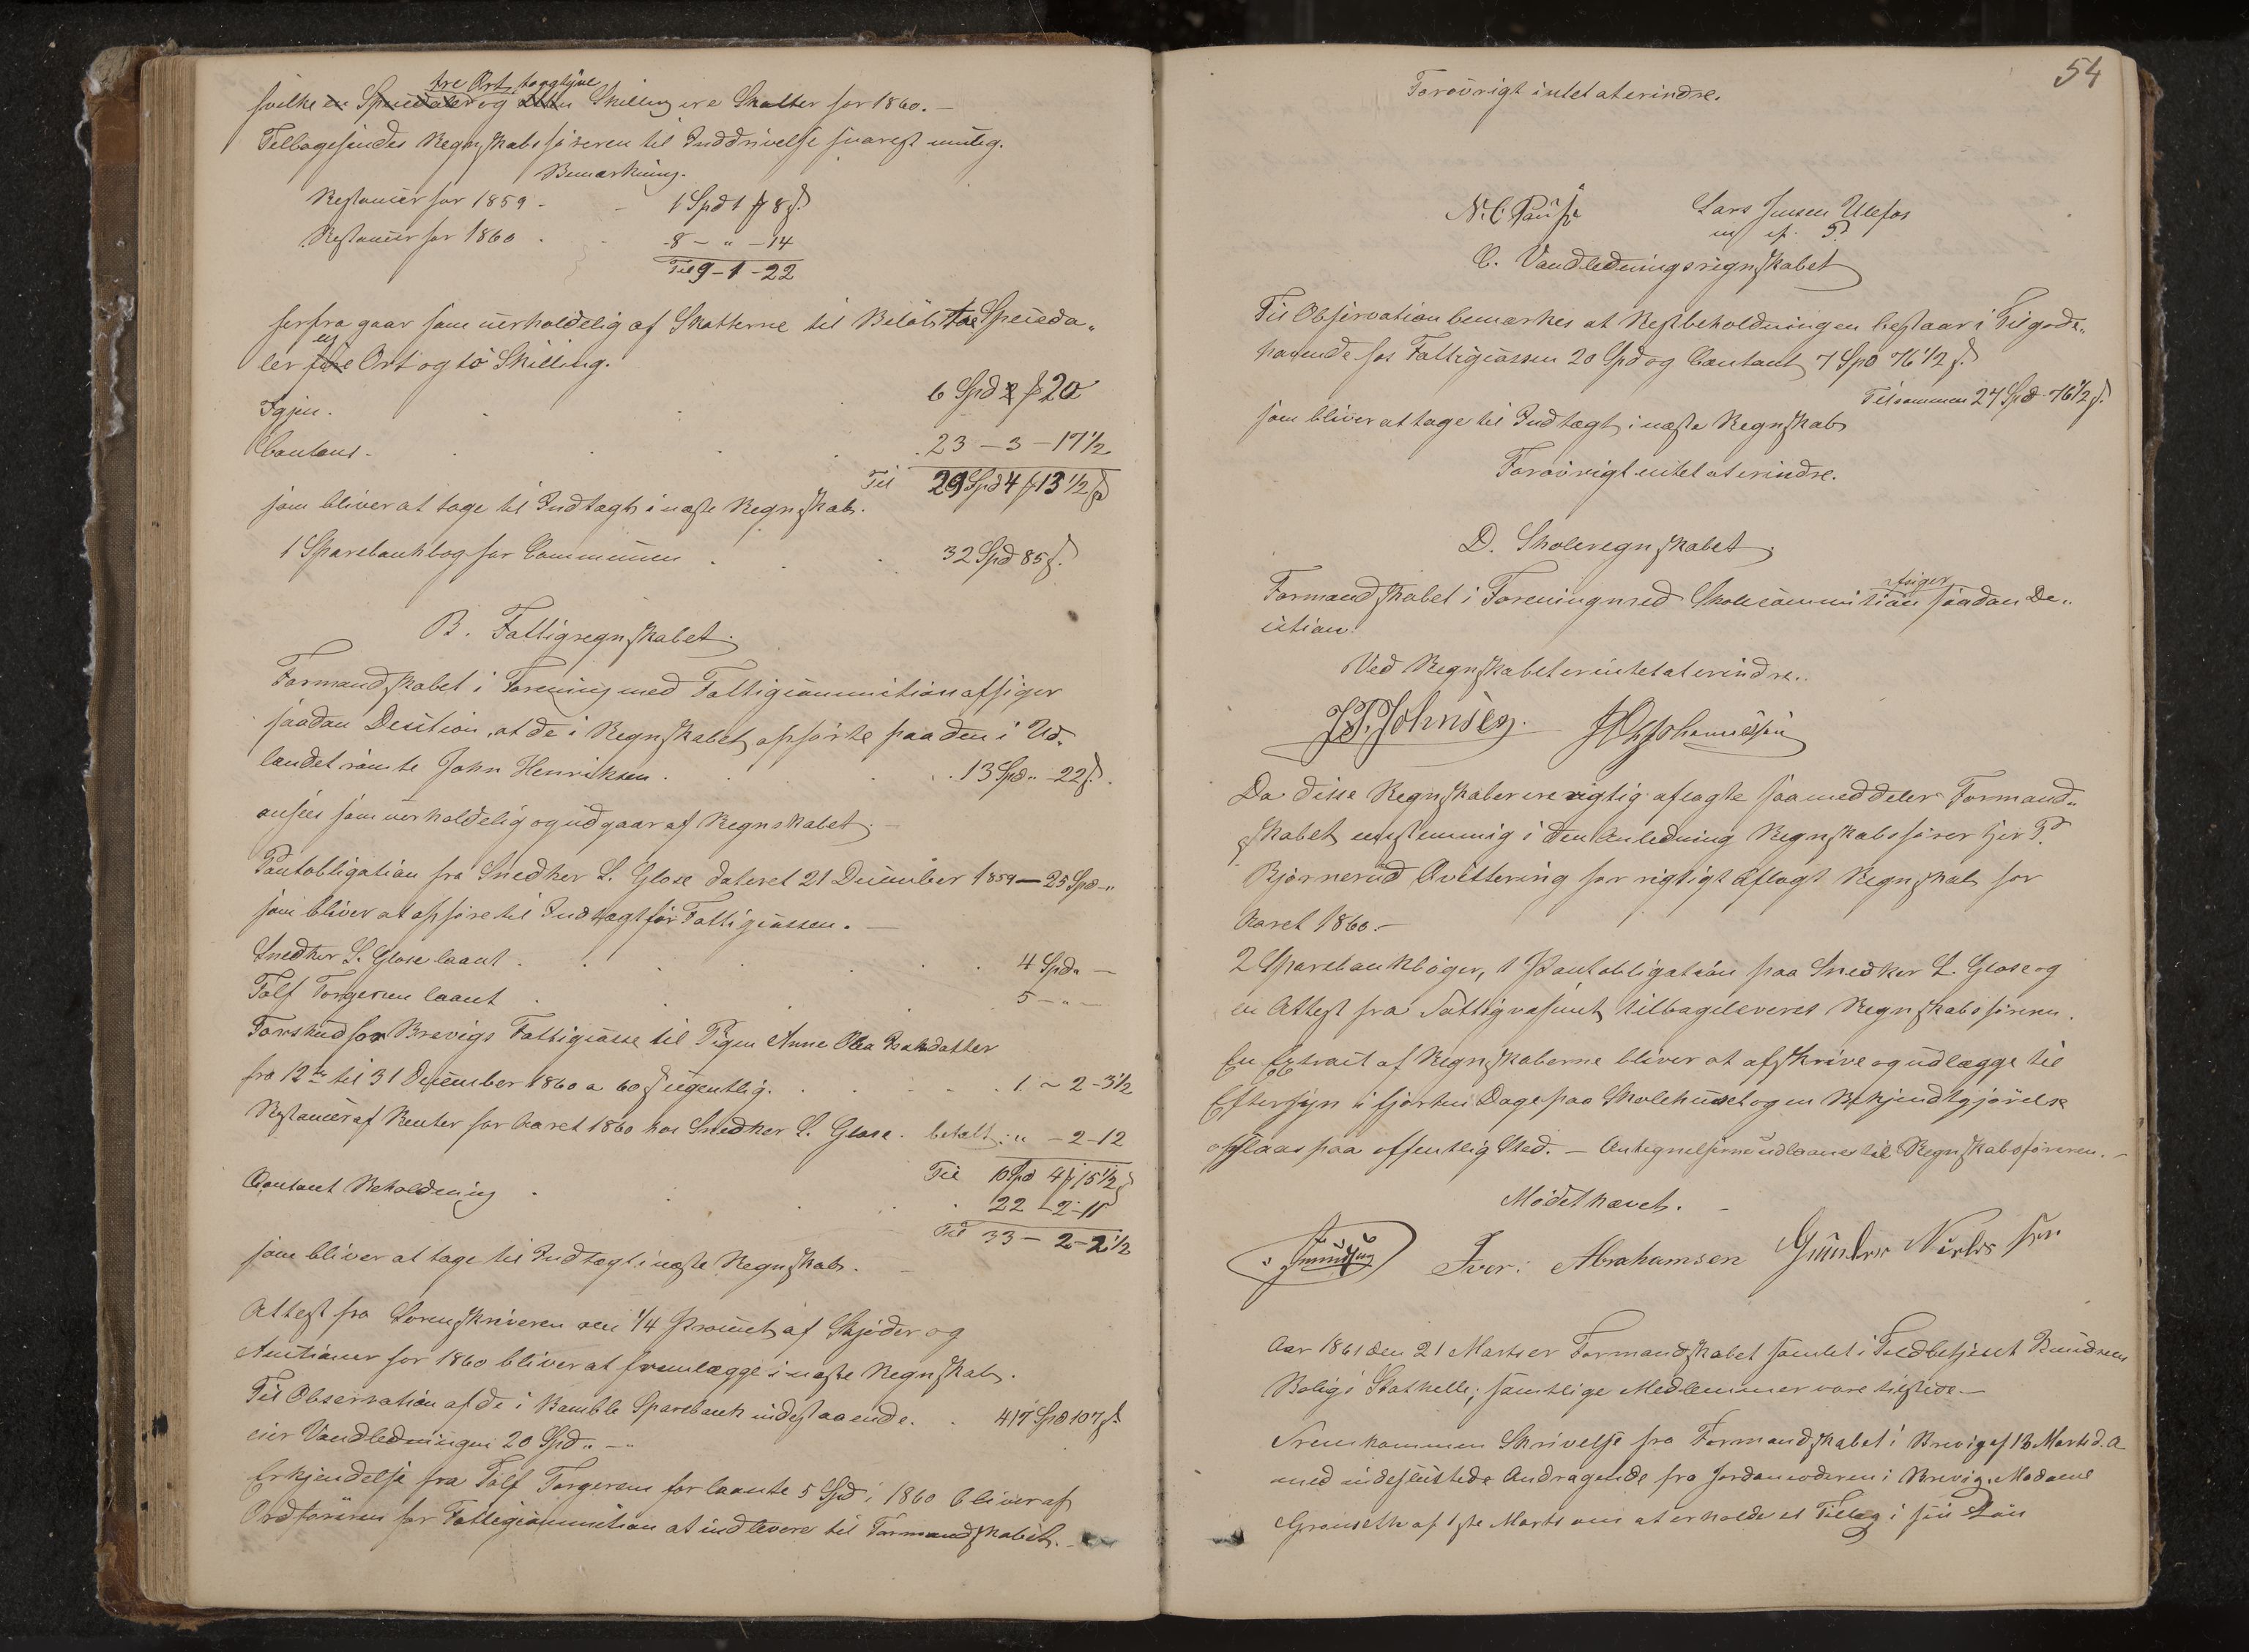 tre Ort toogtyve
hvilke en Speciedaler og Skilling ere Skatter for 1860.-
Tilbagesendes Regnskabsføreren til Inddrivelse snarest mulig.
Bemærkning.
Restancer for 1859 - - 1 Spd 1 # 8 ß
Restancer for 1860 . - 8 - " - 14
Til 9 - 1 - 22
herfra gaar som uerholdelig af Skatterne til Beløb tre Spesieda"
en
ler fire Ort og to Skilling.
Igjen . . . . 6 Spd 2 # 20
Contant . . . . 23 - 3 - 17 1/2
Til 29 Spd 4 # 13 1/2 ß
som bliver at tage til Indtægt i næste Regnskab.
1 Sparebankbog for Communen . . 32 Spd 85 ß.
B. Fattigregnskabet.
Formandskabet i Forening med Fattigcommitionen afsiger
saadan Decition, at de i Regnskabet opførte paa den i Ud"
landet rømte John Henriksen . . . 13 Spd " 22 ß.
ansees som uerholdelig og udgaar af Regnskabet.-
Pantobligation fra Snedker L. Glose dateret 21 December 1859 - 25 Spd - "
som bliver at opføre til Indtægt for Fattigcassen. -
Snedker L. Glose laant . . . . 4 Spd " -
Tolf Torgersen laant . . . . 5 - " -
Forskud for Brevigs Fattigcasse til Pigen Anne Olea Isaksdatter
fra 12te til 31 December 1860 a 60 ß ugentlig. . . . 1 - 2 - 3 1/2
Restancer af Renter for Aaret 1860 hos Snedker L. Glose. betalt: " - 2 - 12
Til 10 Spd 4 # 15 1/2 ß
Contant Beholdning . . . 22 - 2 - 11
Til 33 - 2 - 2 1/2
som bliver at tage til Indtægt i næste Regnskab. -
Attest fra Sorenskriveren om 1/4 Procent af Skjøder og
Auctioner for 1860 bliver at fremlægge i næste Regnskab.
Til Observation af de i Bamble Sparebank indestaaende. . 417 Spd 107 ß.
eier Vandledningen 20 Spd " - "
Erkjendelse fra Tolf Torgersen for laante 5 Spd i 1860 bliver af
Ordføreren for Fattigcommitionen at indlevere til Formandskabet. -
54
Forøvrigt intet at erindre.
N. C. Pausse Lars Jensen Ulefos
C. Vandledningsregnskabet
Til Observation bemærkes at Restbeholdningen bestaar i Tilgode"
havende hos Fattigcassen 20 Spd og Contant 7 Spd 76 1/2 ß.
Tilsammen 27 Spd 76 1/2 ß.
som bliver at tage til Indtægt i næste Regnskab
Forøvrigt intet at erindre.
D. Skoleregnskabet.
afsiger
Formandskabet i Forening med Skolecommitionen saadan De"
cition.
Ved Regnskabet er intet at erindre.
J. P. Johnsen. Johannessen
Da disse Regnskaber ere rigtig aflagte saa meddeler Formand"
skabet enstemmig i den Anledning Regnskabsfører Hr. P.
Bjørnerud Qvittering for rigtigt aflagt Regnskab for
Aaret 1860.-
2 Sparebankbøger, 1 Pantobligation paa Snedker L. Glose og
en Attest fra Fattigvæsenet tilbageleveres Regnskabsføreren.
En Extract af Regnskaberne bliver at afskrive og udlægge til
Eftersyn i fjorten Dage paa Skolehuset og en Bekjendtgjørelse
opslaaes paa offentlig Sted. - Antegnelserne udlaanes til Regnskabsføreren. -
Mødet hævet. -
Iver: Abrahamsen Gunder Nielssen
Aar 1861 den 21 Marts er Formandskabet samlet i Toldbetjent Knudsens
Bolig i Stathelle; samtlige Medlemmer vare tilstede. -
Fremkommen Skrivelse fra Formandskabet i Brevig af 13 Marts d. A.
med indesluttede Andragende fra Jordemoderen i Brevig Madame
af 1ste Marts om at erholde et Tillæg i sin Løn